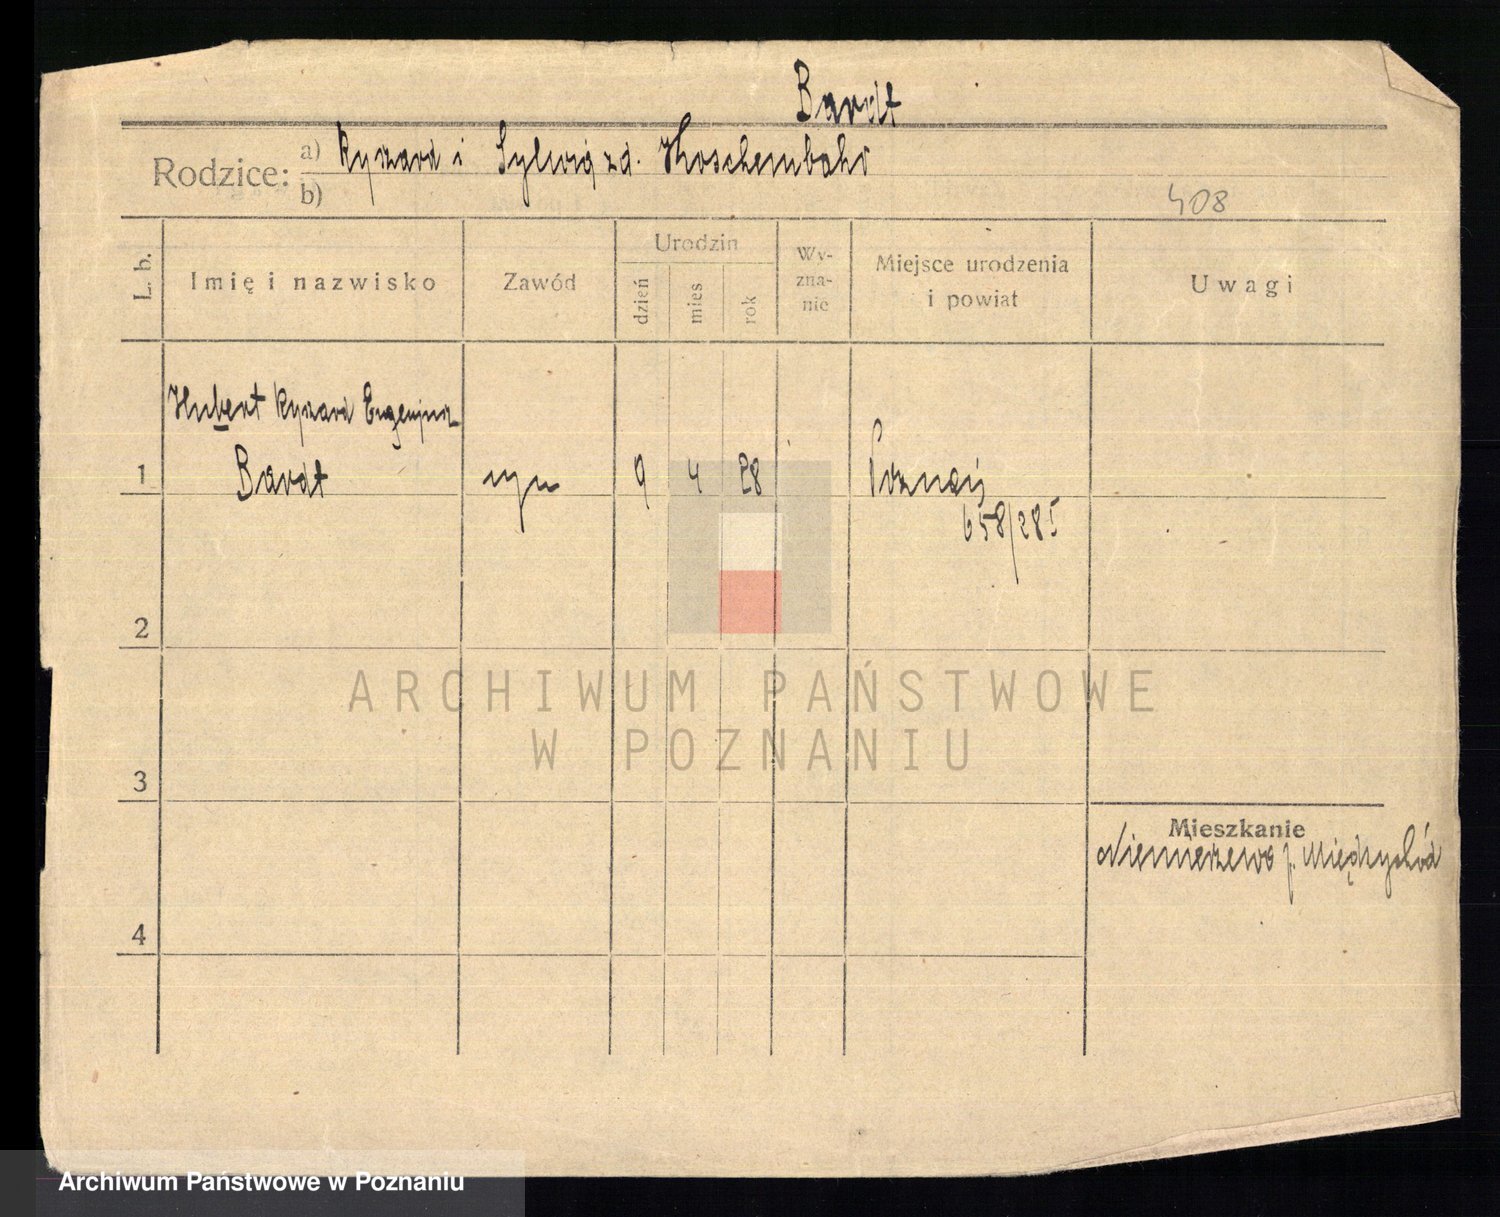 Bardt
Rodzice: a) Ryszard i Sylwia zd. Koschembahr
b)
408
L. b.
Imię i nazwisko
Zawód
Urodzin
dzień
mies
rok
Wy-
zna-
nie
Miejsce urodzenia
i powiat
Uwagi
Hubert Ryszard Eugenjusz
1 Bardt syn 9 4 28 Poznań
658/285
2
ARCHIWUM PAŃSTWOWE
W POZNANIU
3
Mieszkanie
Niemierzewo p. Międzychód
4
Archiwum Państwowe w Poznaniu